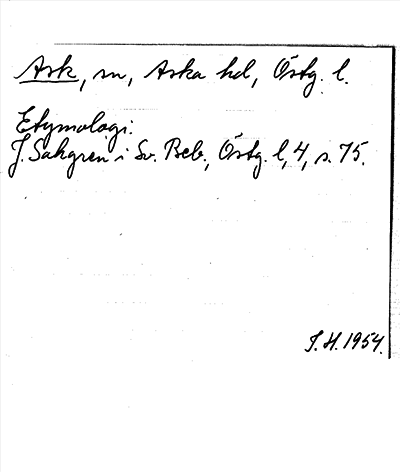 Ask, sn, Aska hd, Östg. l.
Etymologi:
J. Sahgren i Sv. Beb., Östg. l, 4, s. 75.
J. H. 1954.